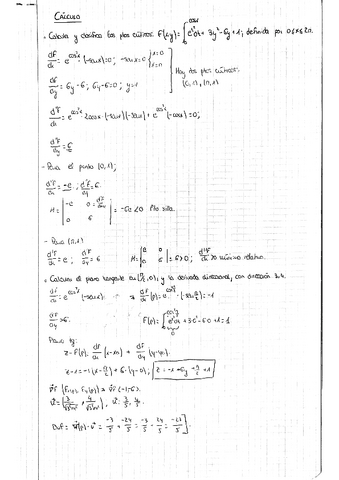 Cálculo
- Calcula y clasifica los ptos críticos F(x,y) = ∫₀^cosx e^t² dt + 3y² - 6y + 1; definida por 0≤x≤2π.
dF/dx = e^cos²x (-senx) = 0; -senx = 0 { x=0 x=π
Hay dos ptos críticos: (0,1), (π,1)
dF/dy = 6y - 6; 6y - 6 = 0; y = 1
d²F/dx = e^cos²x 2cosx · (-senx)(-senx) + e^cos²x (-cosx) = 0;
d²F/dy = 6
- Para el punto (0,1);
d²F/dx = -e; d²F/dy = 6
H = | -e 0 / 0 6 | = -6e < 0 Pto silla.
- Para (π,1)
d²F/dx = e; d²F/dy = 6 H = | e 0 / 0 6 | = 6e > 0; d²F/dx > 0 mínimo relativo.
- Calcula el plano tangente en (π/2, 0), y la derivada direccional, con dirección 3,4.
dF/dx = e^cos²x (-senx) → dF/dx (P) = e^cos²π/2 · (-sen π/2) = -1
dF/dy = -6. F(P) = ∫₀^cos π/2 e^t² dt + 3·0² - 6·0 + 1 = 1
Plano tg:
z - F(P) = dF/dx (x-m) + dF/dy (y-n).
z - 1 = -1 (x - π/2) + 6 · (y - 0); z = -x + 6y + π/2 + 1
∇F (Fx(P), Fy(P)) → ∇F (-1, 6).
u = (3/√3²+4², 4/√3²+4²), u = 3/5, 4/5.
DuF = ∇F(P) · u = -3/5 + -24/5 = -3/5 - 24/5 = -27/5